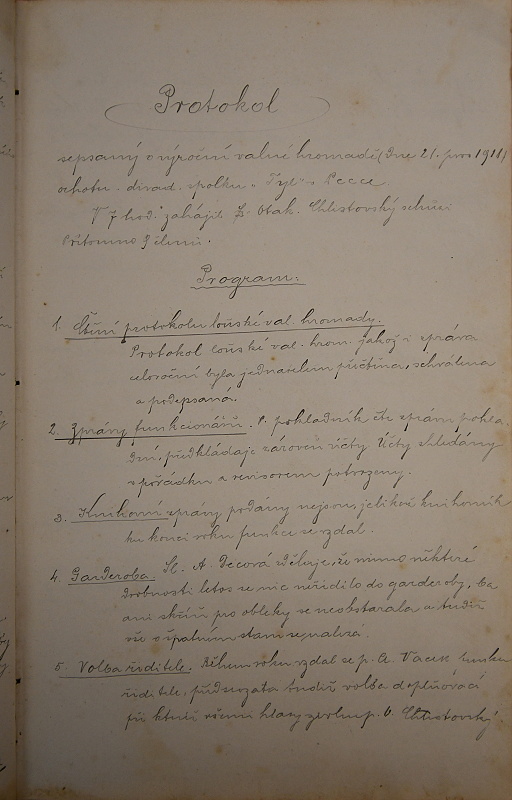 Protokol
sepsaný o výroční valné hromadě (dne 21. pros 1911)
ochotn. divad. spolku "Tyl" v Pecce
V 7 hod. zahájil p. Otak. Chlistovský schůzi
Přítomno 9 členů.
Program:
1. Čtení protokolu loňské val. hromady.
Protokol loňské val. hrom. jakož i zpráva
celoroční byla jednatelem přečtena, schválena
a podepsaná.
2. Zprávy funkcionářů. P. pokladník čte zprávu pokla
dní, předkládaje zároveň účty. Účty shledány
v pořádku a revisorem potvrzeny.
3. Knihovní zprávy podány nejsou, jelikož knihovník
ku konci roku funkce se vzdal.
4. Garderoba. Sl. A. Decová sděluje, že mimo některé
drobnosti letos se nic neřídilo do garderoby, ba
ani skříň pro obleky se neobstarala a tudíž
vše v špatném stavu se nalézá.
5. Volba ředitele. Během roku vzdal se p. A. Vacek funkce
ředitele, předsevzata tudíž volba doplňovací
při které všemi hlasy zvolen p. O. Chlistovský.